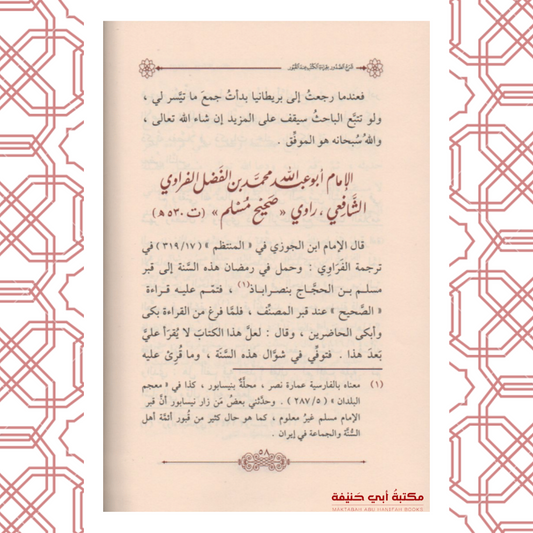 شرح الصدر بقراءة الكتب عند القبر
فعندما رجعتُ إلى بريطانيا بدأتُ جمعَ ما تيَّسر لي ،
ولو تتبَّع الباحثُ سيقف على المزيد إن شاء الله تعالى ،
واللهُ سُبحانه هو الموفِّق .
الإمام أبو عبد الله محمد بن الفضل الفراوي
الشَّافِعي ، راوي « صَحيح مُسْلم » (ت ٥٣٠ هـ)
قال الإمام ابن الجوزي في « المنتظم » ( ٣١٩/١٧ ) في
ترجمة الفَرَاوِي : وحمل في رمضان هذه السَّنة إلى قبر
مسلم بـن الحجـاج بنصـرابـاذ(١) ، فتمّـم عليـه قـراءة
« الصَّحيح » عند قبر المصنِّف ، فلمَّا فرغ من القراءة بكى
وأبكى الحاضرين ، وقال : لعلَّ هذا الكتابَ لا يُقرَأ عليَّ
بَعدَ هذا . فتوفِّي في شوَّال هذه السَّنَة ، وما قُرِئ عليه
(١) معناه بالفارسية عمارة نصر ، محلَّةٌ بنيسابور ، كذا في « معجم
البلدان » ( ٢٨٧/٥ ) . وحدَّثني بعضُ مَن زار نيسابور أنَّ قبر
الإمام مسلم غيرُ معلوم ، كما هو حال كثير من قُبور أئمَّة أهل
السُّنَّة والجماعة في إيران .
٥٨
مكتبة أبي حنيفة
MAKTABAH ABU HANIFAH BOOKS